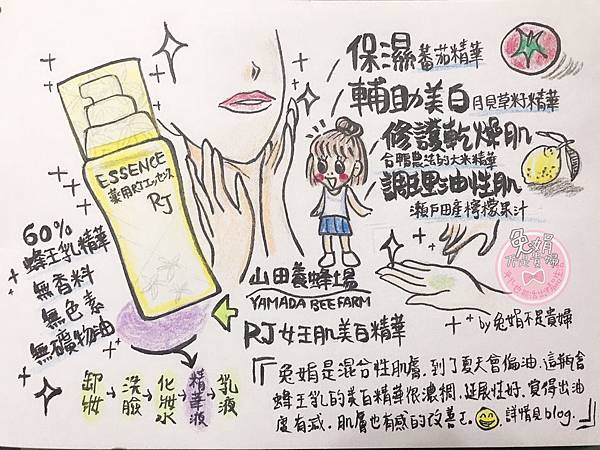 保濕 蕃茄精華
輔助美白 月見草籽精華
修護乾燥肌
合鴨農法的大米精華
調理油性肌
瀨戶田產檸檬果汁
ESSENCE
薬用RJエッセンス
RJ
60%
蜂王乳精華
無香料
無色素
無礦物油
山田養蜂場
YAMADA BEE FARM
RJ女王肌美白精華
兔娟
不是貴婦
by兔娟不是貴婦
卸妝→洗臉→化妝水→精華液→乳液
『兔娟是混合性肌膚,到了夏天會偏油,這瓶含
蜂王乳的美白精華很濃稠,延展性好,覺得出油
度有減,肌膚也有感的改善了😄,詳情見blog.』